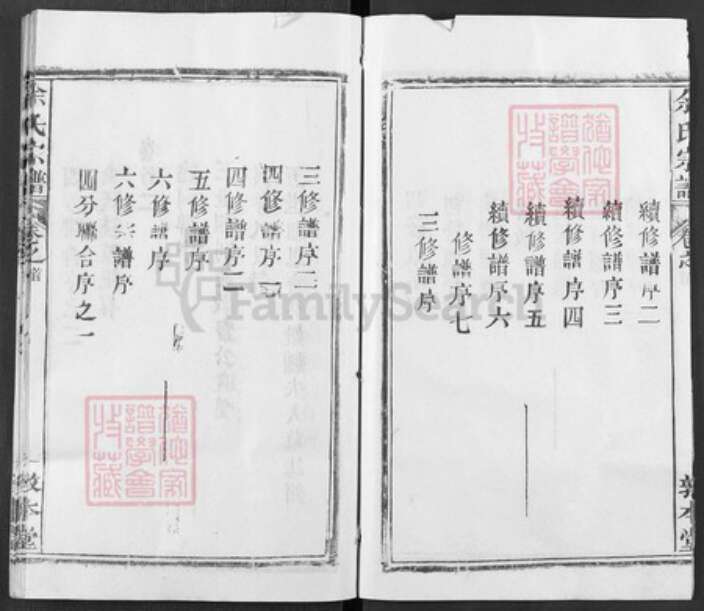 余氏宗譜
卷之首
敦本堂
續修譜序二
續修譜序三
續修譜序四
續修譜序五
續修譜序六
修譜序七
三修譜序
三修譜序二
四修譜序
四修譜序二
五修譜序
六修譜序
六修宗譜序
四分聯合序之一
余氏宗譜
卷之首
敦本堂
猶他家
譜學會
收藏
FamilySearch